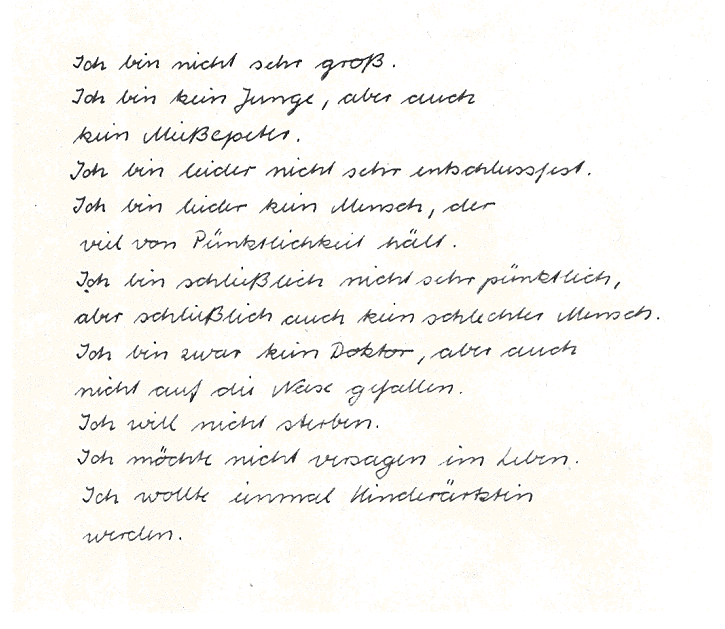 Ich bin nicht sehr groß.
Ich bin kein Junge, aber auch
kein Mießepeter.
Ich bin leider nicht sehr entschlussfest.
Ich bin leider kein Mensch, der
viel von Pünktlichkeit hält.
Ich bin schließlich nicht sehr pünktlich,
aber schließlich auch kein schlechter Mensch.
Ich bin zwar kein Doktor, aber auch
nicht auf die Nase gefallen.
Ich will nicht sterben.
Ich möchte nicht versagen im Leben.
Ich wollte einmal Kinderärtztin
werden.